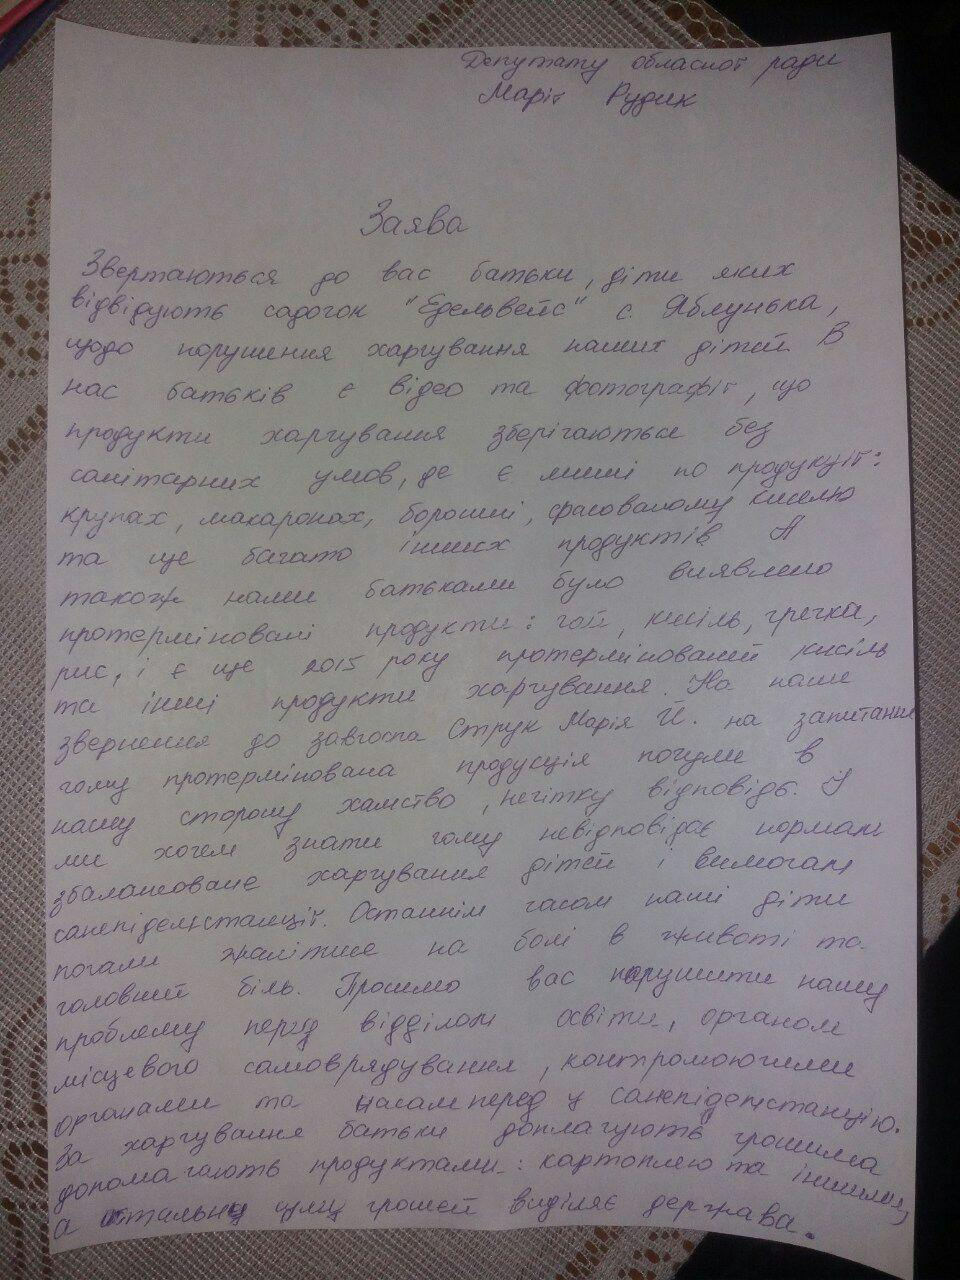 Депутату обласної ради
Марії Рудик
Заява
Звертаються до вас батьки, діти яких
відвідують садочок "Едельвейс" с. Яблунька,
щодо порушення харчування наших дітей. В
нас батьків є відео та фотографії, що
продукти харчування зберігаються без
санітарних умов, де є миші по продукції:
крупах, макаронах, борошні, фасованому киселю
та ще багато інших продуктів. А
також нами батьками було виявлено
протерміновані продукти: чай, кисіль, гречка,
рис, і є ще 2015 року протермінований кисіль
та інші продукти харчування. На наше
звернення до завгоспа Струк Марія Й. на запитання
чому протермінована продукція почули в
нашу сторону хамство, нечітку відповідь. І
ми хочем знати чому невідповідає нормам
збалансоване харчування дітей і вимогам
санепідемстанції. Останнім часом наші діти
почали жалітися на болі в животі та
головний біль. Просимо вас порушити нашу
проблему перед відділом освіти, органом
місцевого самоврядування, контролюючими
органами та насамперед у санепідемстанцію.
За харчування батьки доплачують грошима
допомагають продуктами: картоплею та іншими,
а остальну суму грошей виділяє держава.